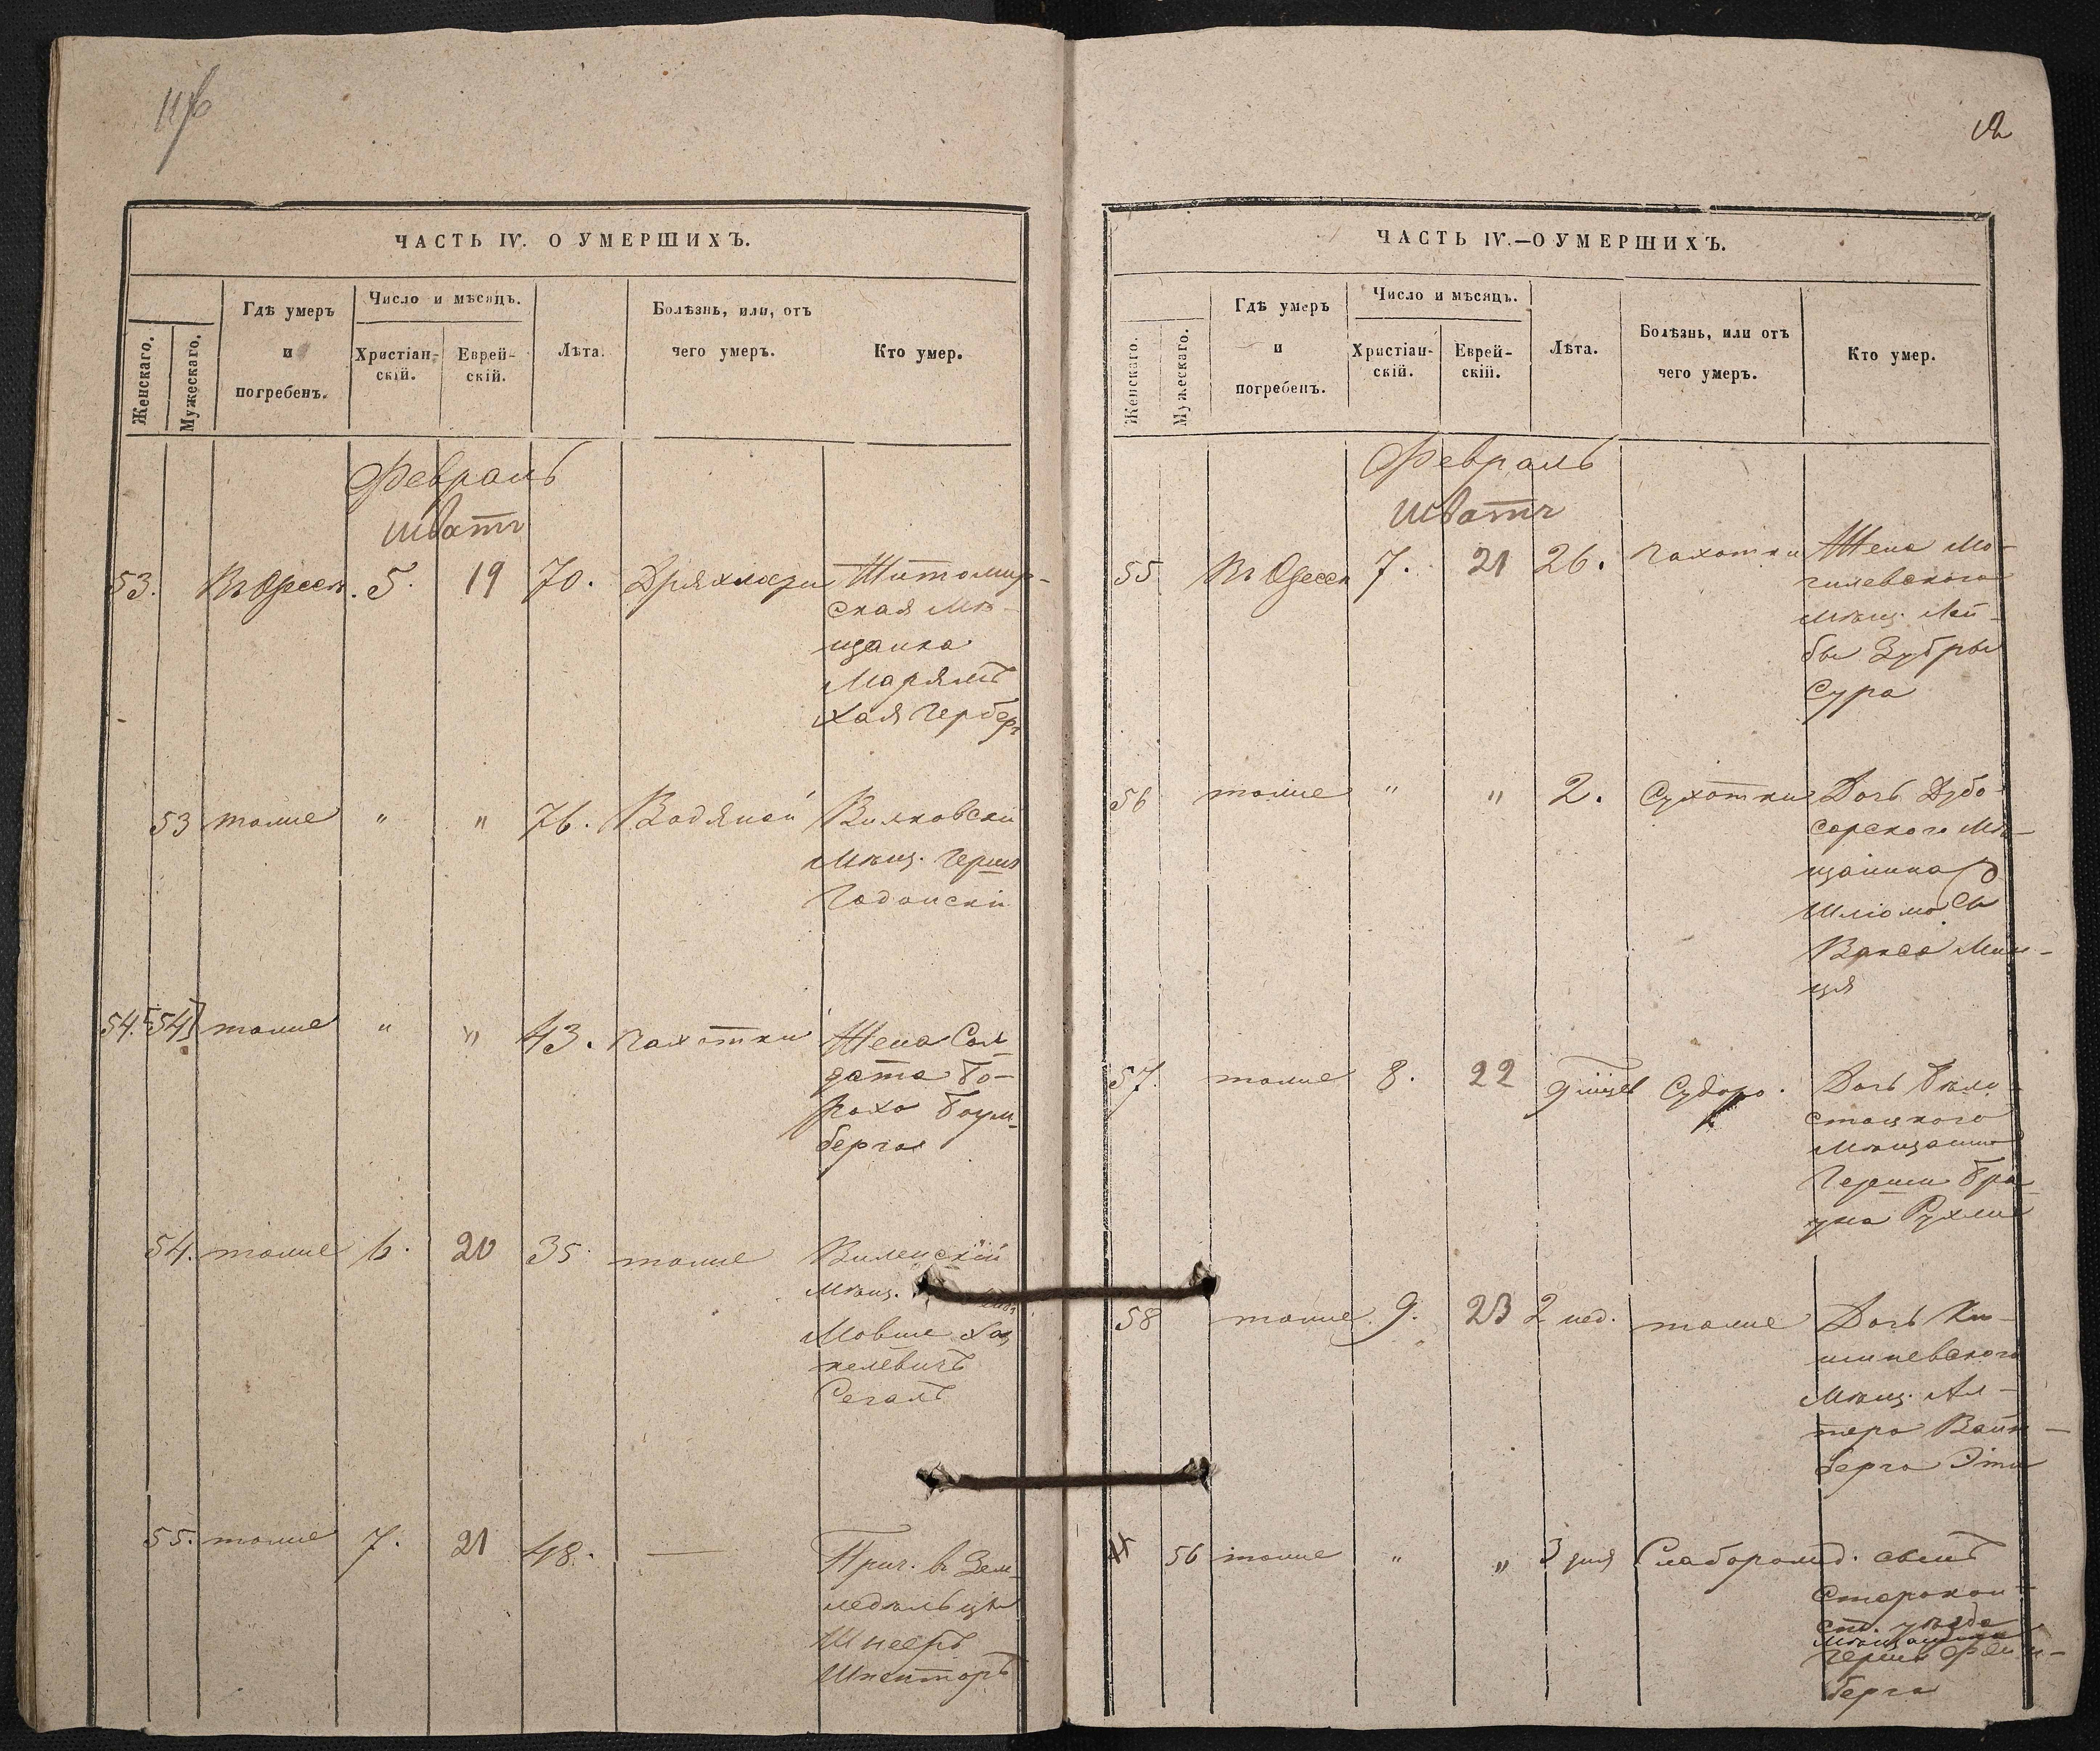 11об
ЧАСТЬ IV. О УМЕРШИХЪ.
Женскаго.
Мужескаго.
Гдѣ умеръ
и
погребенъ.
Число и мѣсяцъ.
Христіан-
скій.
Еврей-
скій.
Лѣта.
Болѣзнь, или, отъ
чего умеръ.
Кто умер.
Февраль
Шватъ
53. Въ Одессѣ. 5. 19 70. Дряхлости Житомир-
ская Мѣ-
щанка
Марьямъ
Хая Герберг
53 тоже " " 76. Водяной Вилковскій
Мѣщ. Гершъ
Гоdанскій
54. [54] тоже " " 43. Чахотки Жена Сол-
дата Бо-
роха Баум-
берга
54. тоже 6. 20 35 тоже Виленскій
Мѣщ.
Мовше Хац
келевичъ
Сегалъ
55. тоже 7. 21 48. — Прич. в Зем-
ледѣльцы
Шнееръ
Шпекторъ
12
ЧАСТЬ IV.—О УМЕРШИХЪ.
Женскаго.
Мужескаго.
Гдѣ умеръ
и
погребенъ.
Число и мѣсяцъ.
Христіан-
скій.
Еврей-
скій.
Лѣта.
Болѣзнь, или отъ
чего умеръ.
Кто умер.
Февраль
Шватъ
55 Въ Одессѣ 7. 21 26. Чахотки Жена Мо-
гилевскаго
Мѣщ. Лей-
бы Зубры
Сура
56 тоже " " 2. Сухотки Дочь Дубо-
сарскаго Мѣ-
щанина
Шліомы
Вакса Мин-
ця
57. тоже 8. 22 9 мѣцев Судоро. Дочь Бѣло-
стоцкаго
Мѣщанина
Герши Бра-
уна Рухля
58 тоже 9. 23 2 нед. тоже Дочь Ки-
шиневскаго
Мѣщ. Ал-
тера Вайн-
берга Эти
56 тоже " " 3 дня Слаборожд. сынъ
Старокон-
ст. уѣзда
Мѣщанина
Герша Файн-
берга